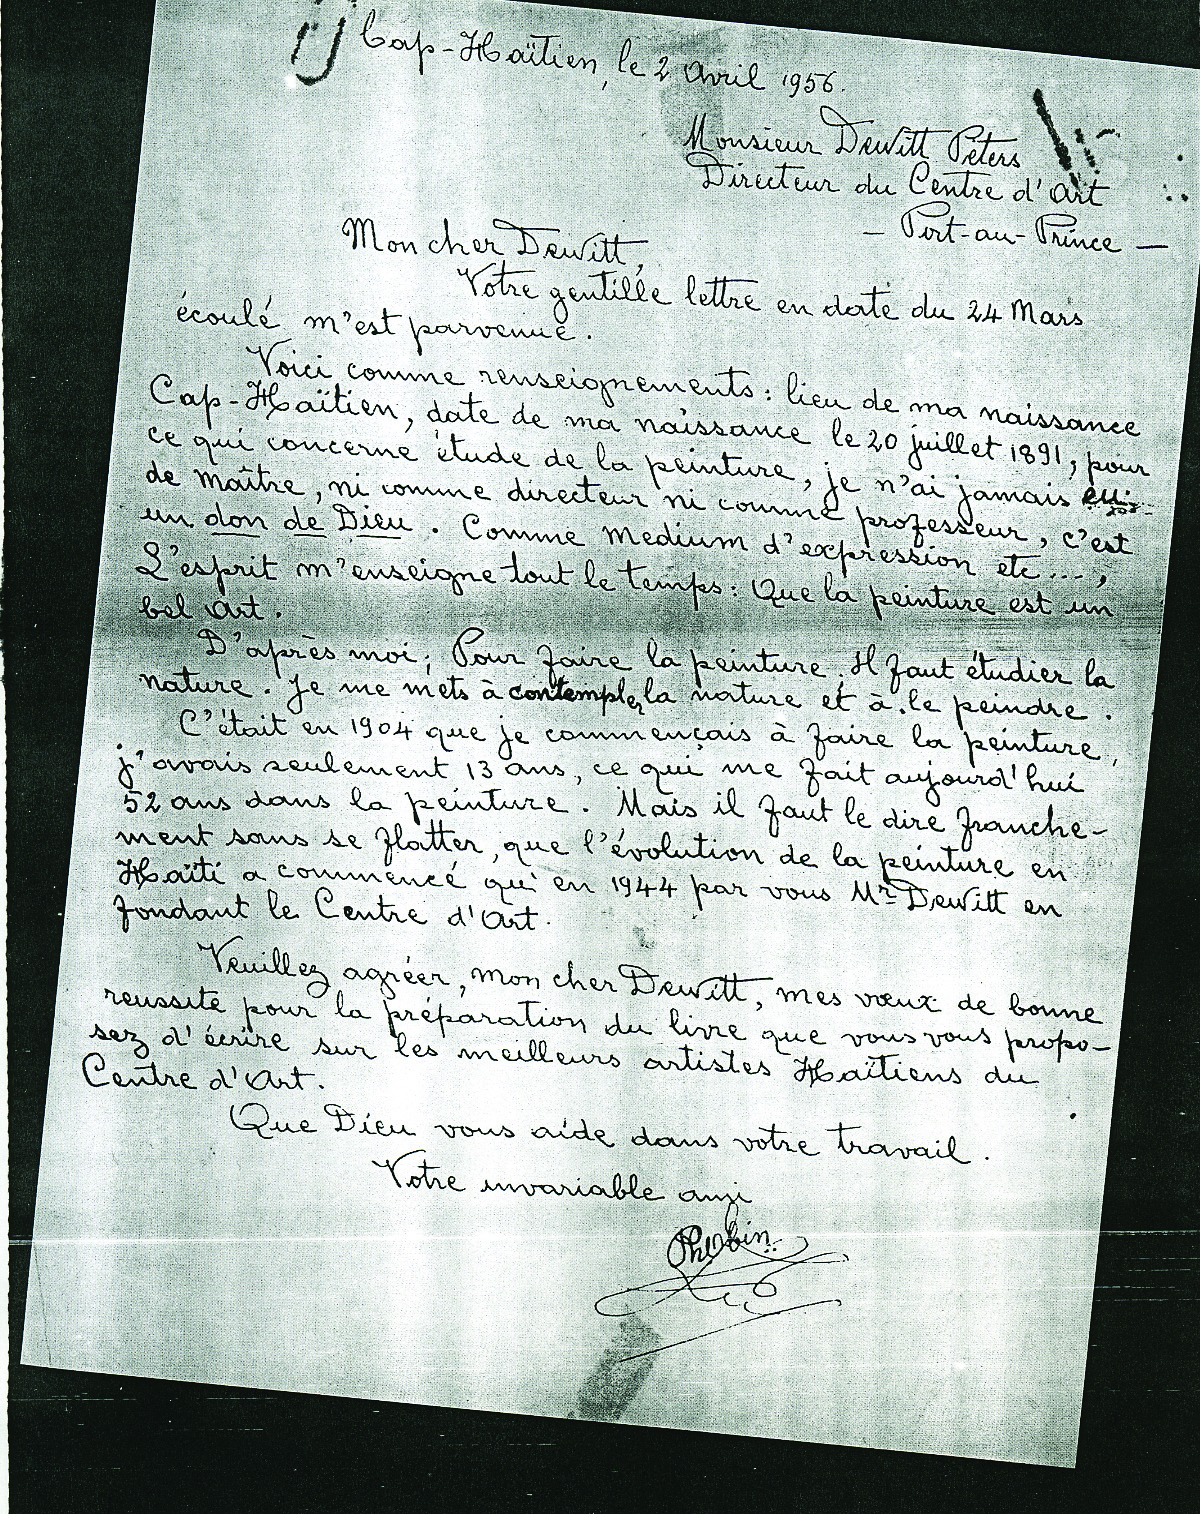 Cap-Haïtien, le 2 Avril 1956.
Monsieur Dewitt Peters
Directeur du Centre d'Art
- Port-au-Prince -
Mon cher Dewitt,
Votre gentille lettre en date du 24 Mars
écoulé m'est parvenue.
Voici comme renseignements: lieu de ma naissance
Cap-Haïtien, date de ma naissance le 20 juillet 1891, pour
ce qui concerne étude de la peinture, je n'ai jamais eu
de maître, ni comme directeur ni comme professeur, c'est
un don de Dieu. Comme medium d'expression etc...,
L'esprit m'enseigne tout le temps: Que la peinture est un
bel Art.
D'après moi; Pour faire la peinture. Il faut étudier la
nature. Je me mets à contempler la nature et à le peindre.
C'était en 1904 que je commençais à faire la peinture,
j'avais seulement 13 ans, ce qui me fait aujourd'hui
52 ans dans la peinture. Mais il faut le dire franche-
ment sans se flatter, que l'évolution de la peinture en
Haïti a commencé qu'en 1944 par vous Mr Dewitt en
fondant le Centre d'Art.
Veuillez agréer, mon cher Dewitt, mes vœux de bonne
reussite pour la préparation du livre que vous vous propo-
sez d'écrire sur les meilleurs artistes Haïtiens du
Centre d'Art.
Que Dieu vous aide dans votre travail.
Votre invariable ami
Ph Obin